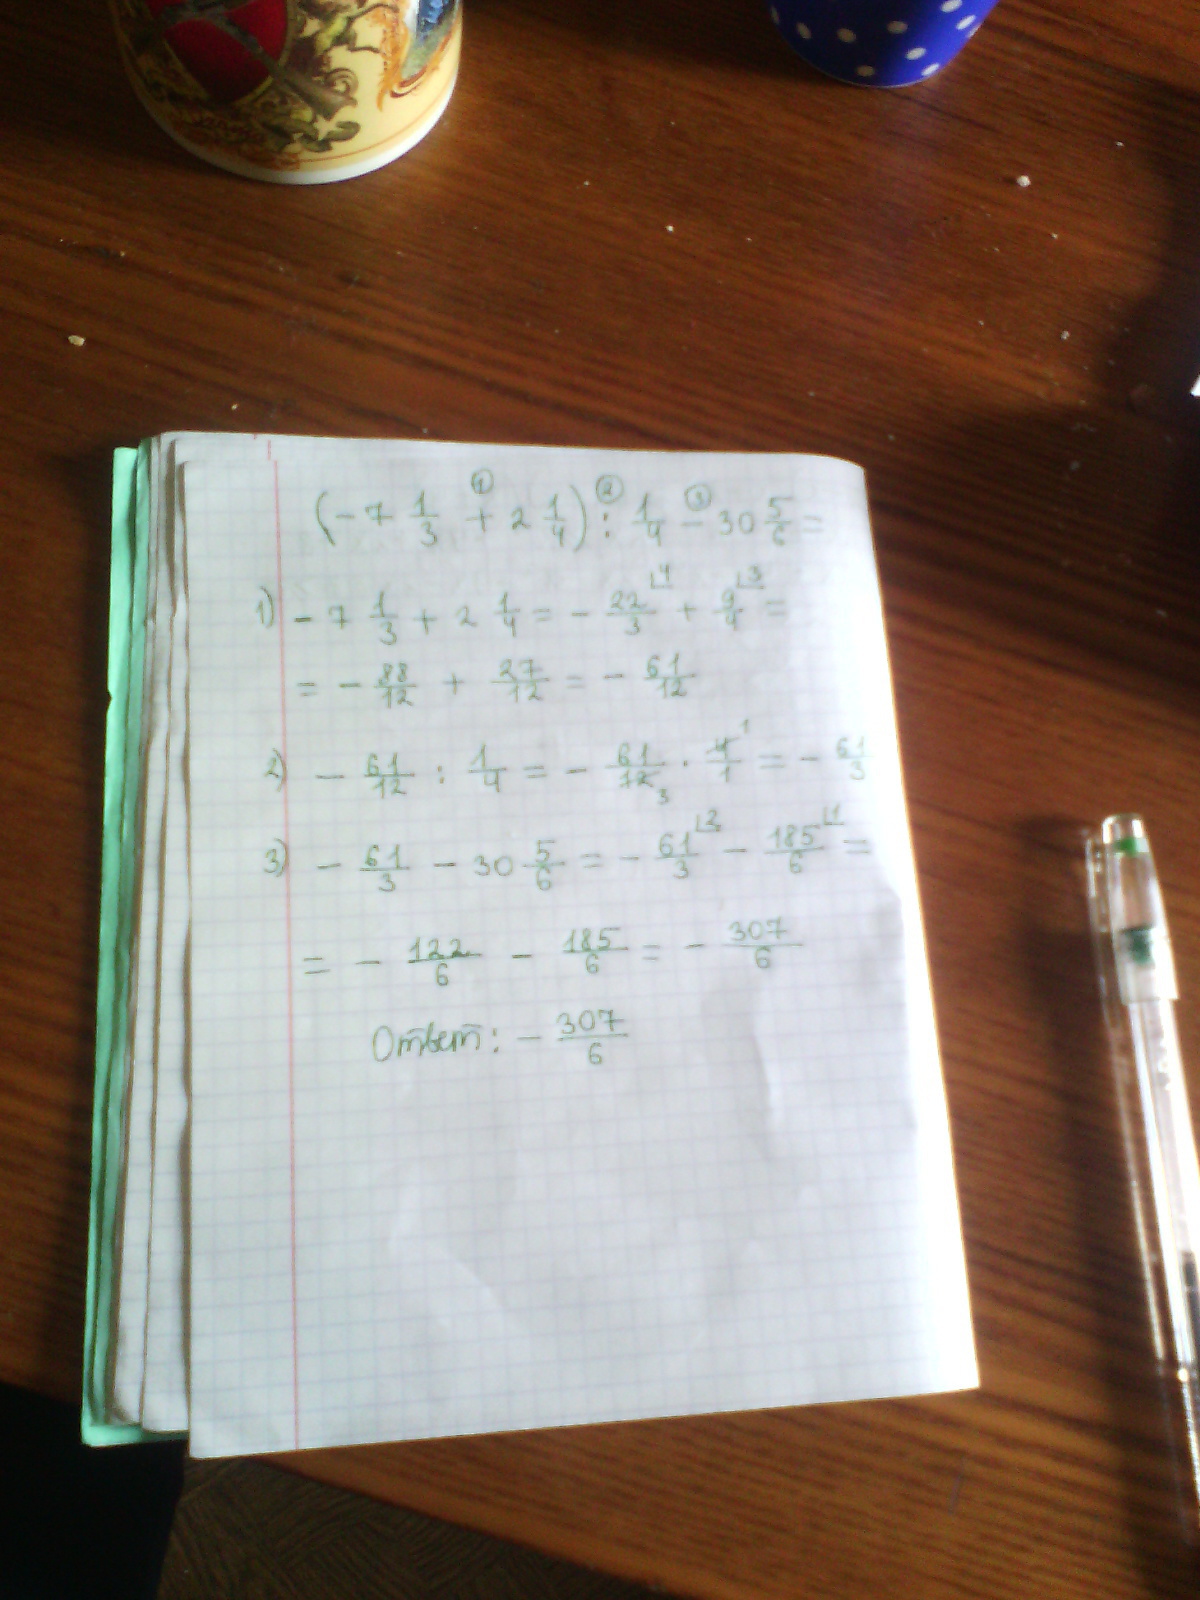 (-7 1/3 + 2 1/4) : 1/4 - 30 5/6 =
① ② ③
1) - 7 1/3 + 2 1/4 = - 22/3 ⌊4 + 9/4 ⌊3 =
= - 88/12 + 27/12 = - 61/12
2) - 61/12 : 1/4 = - 61/12 3 · 4/1 1 = - 61/3
3) - 61/3 - 30 5/6 = - 61/3 ⌊2 - 185/6 ⌊1 =
= - 122/6 - 185/6 = - 307/6
Ответ: - 307/6